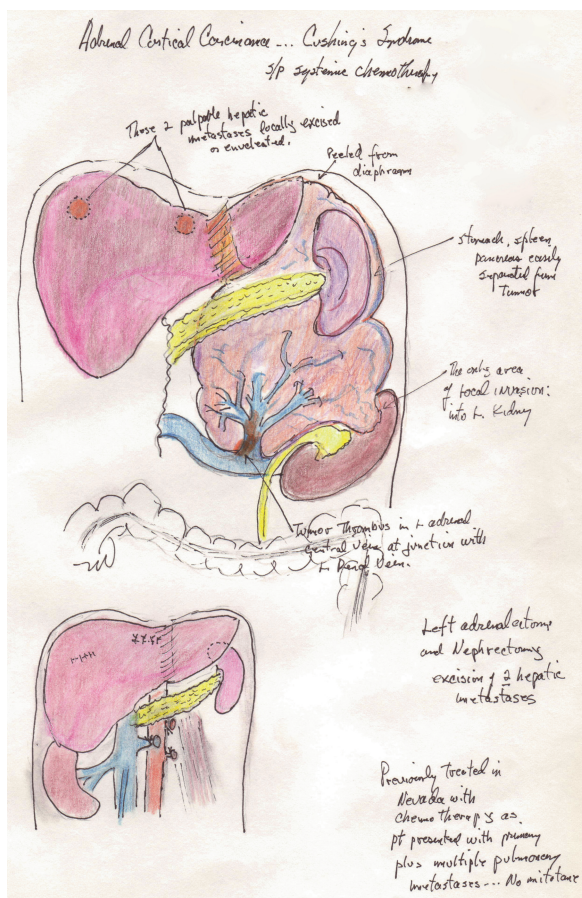 Adrenal Cortical Carcinoma ... Cushing's Syndrome
s/p systemic chemotherapy
These 2 palpable hepatic
metastases locally excised
or enucleated.
Peeled from
diaphragm
Stomach, spleen
pancreas easily
separated from
Tumor
The only area
of local invasion:
into L. Kidney
Tumor Thrombus in L adrenal
central vein at junction with
L Renal Vein.
Left adrenalectomy
and Nephrectomy
excision of 2 hepatic
metastases
Previously treated in
Nevada with
chemotherapy as
pt presented with primary
plus multiple pulmonary
metastases --- No mitotane